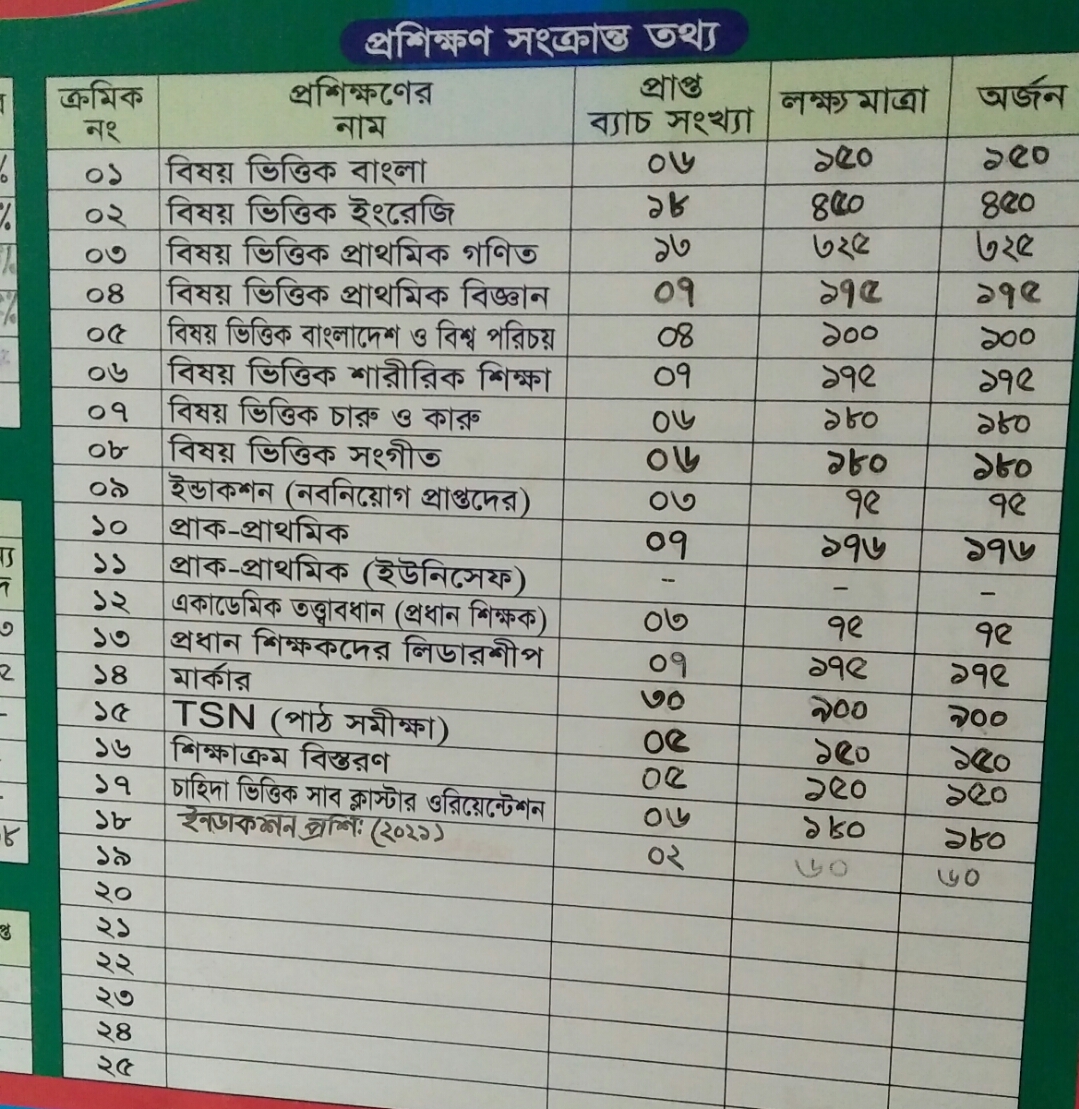 প্রশিক্ষণ সংক্রান্ত তথ্য
ক্রমিক নং প্রশিক্ষণের নাম প্রাপ্ত ব্যাচ সংখ্যা লক্ষ্যমাত্রা অর্জন
০১ বিষয় ভিত্তিক বাংলা ০৬ ১৫০ ১৫০
০২ বিষয় ভিত্তিক ইংরেজি ১৮ ৪৫০ ৪৫০
০৩ বিষয় ভিত্তিক প্রাথমিক গণিত ১৩ ৩২৫ ৩২৫
০৪ বিষয় ভিত্তিক প্রাথমিক বিজ্ঞান ০৭ ১৭৫ ১৭৫
০৫ বিষয় ভিত্তিক বাংলাদেশ ও বিশ্ব পরিচয় ০৪ ১০০ ১০০
০৬ বিষয় ভিত্তিক শারীরিক শিক্ষা ০৭ ১৭৫ ১৭৫
০৭ বিষয় ভিত্তিক চারু ও কারু ০৬ ১৮০ ১৮০
০৮ বিষয় ভিত্তিক সংগীত ০৬ ১৮০ ১৮০
০৯ ইন্ডাকশন (নবনিয়োগ প্রাপ্তদের) ০৩ ৭৫ ৭৫
১০ প্রাক-প্রাথমিক ০৭ ১৭৬ ১৭৬
১১ প্রাক-প্রাথমিক (ইউনিসেফ) - - -
১২ একাডেমিক তত্ত্বাবধান (প্রধান শিক্ষক) ০৩ ৭৫ ৭৫
১৩ প্রধান শিক্ষকদের লিডারশীপ ০৭ ১৭৫ ১৭৫
১৪ মার্কার ৩০ ৯০০ ৯০০
১৫ TSN (পাঠ সমীক্ষা) ০৫ ১৫০ ১৫০
১৬ শিক্ষাক্রম বিস্তরণ ০৫ ১৫০ ১৫০
১৭ চাহিদা ভিত্তিক সাব ক্লাস্টার ওরিয়েন্টেশন ০৬ ১৮০ ১৮০
১৮ ইনডাকশন প্রশি: (২০২১) ০২ ৬০ ৬০
১৯
২০
২১
২২
২৩
২৪
২৫